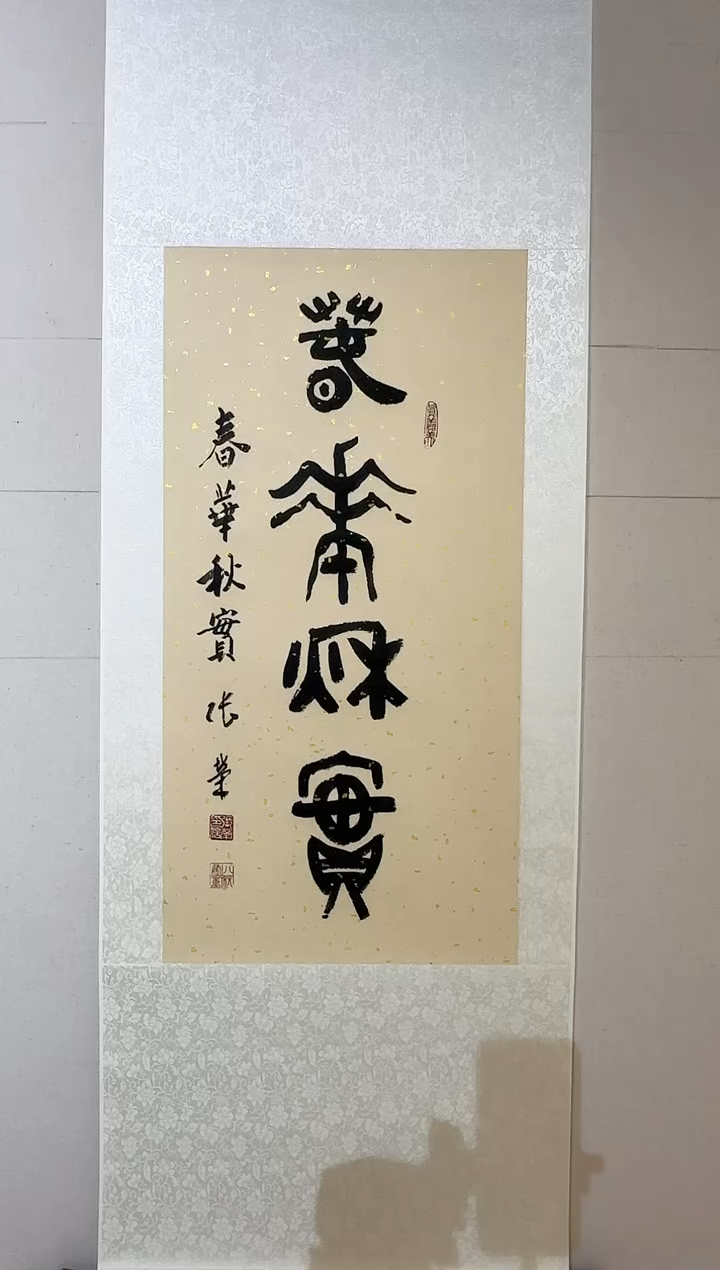 春華秋實
春華秋實 张荣